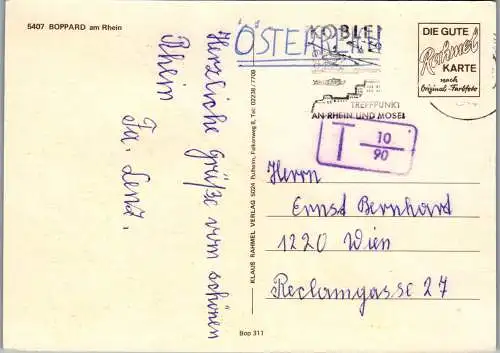 5407 BOPPARD am Rhein
Herzliche Grüße vom schönen
Rhein
Fa. Lenz.
KLAUS RAHMEL VERLAG 5024 Pulheim, Falkenweg 8, Tel. 02238/1708
Bop 311
ÖSTERREICH
KOBLE
TREFFPUNKT
AN RHEIN UND MOSEL
DIE GUTE
Rahmel
KARTE
nach
Original-Farbfoto
T 10
90
Herrn
Ernst Bernhard
1220 Wien
Reclamgasse 27